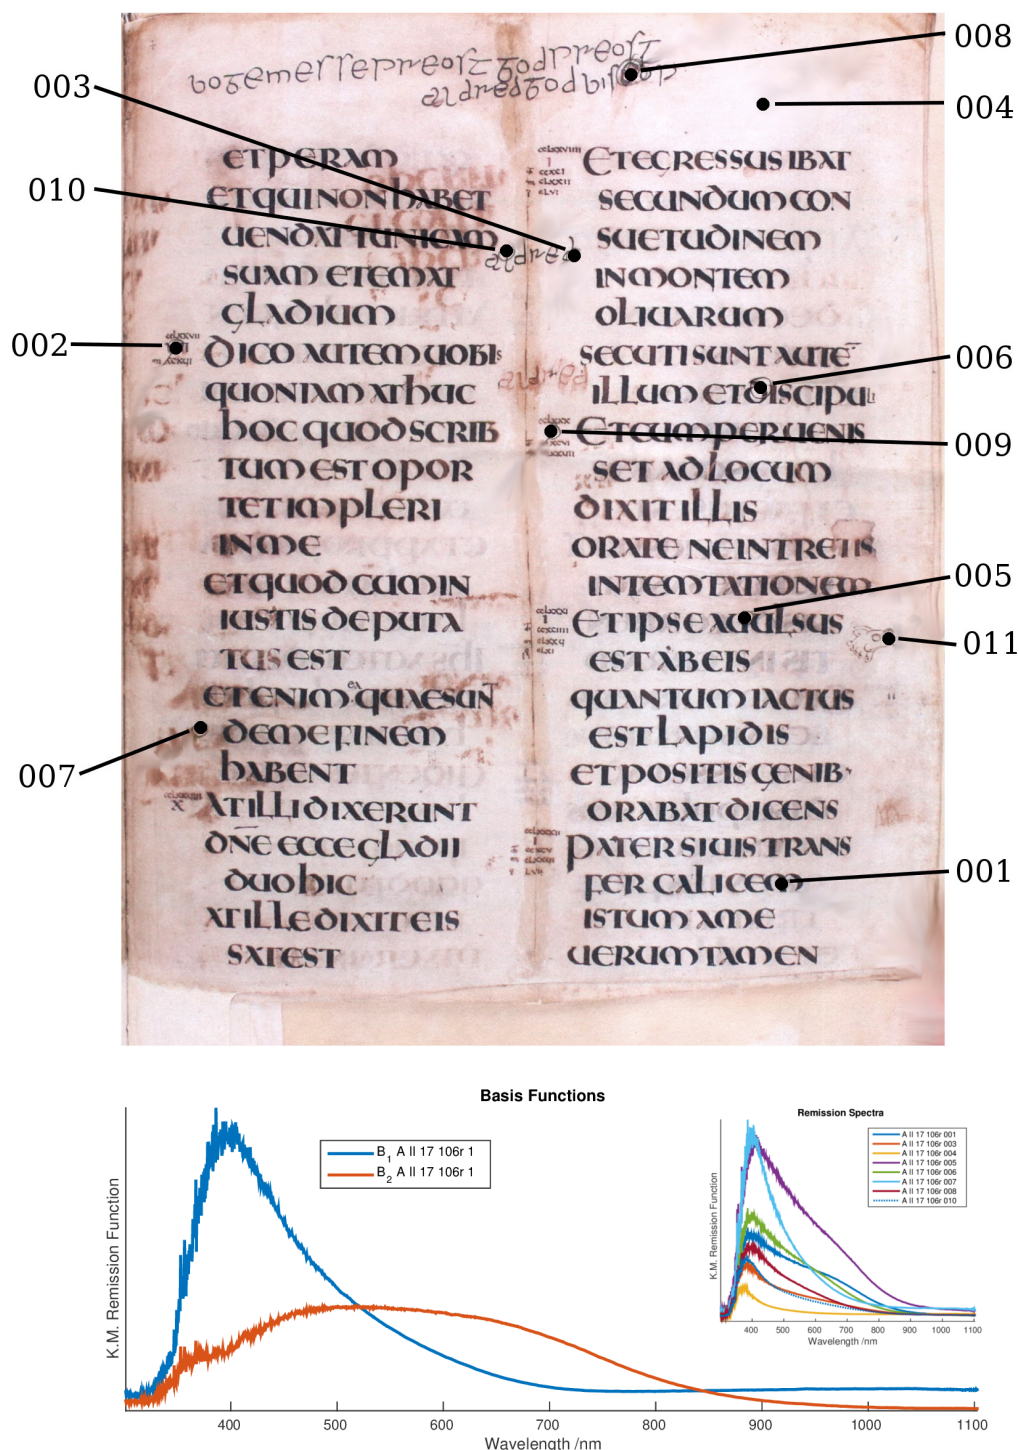 008
003
004
010
ETPERAM
ETQUINONHABET
UENDAT TUNICAM
SUAM ETEMAT
GLADIUM
002
DICO AUTEM UOBIS
QUONIAM ATHUC
HOC QUOD SCRIB
TUM EST OPOR
TET IMPLERI
IN ME
ET QUOD CUM IN
IUSTIS DEPUTA
TUS EST
ETENIM QUAE SUNT
007
DEME FINEM
HABENT
AT ILLI DIXERUNT
DNE ECCE GLADII
DUO HIC
AT ILLE DIXIT EIS
SAT EST
ET EGRESSUS IBAT
SECUNDUM CON
SUETUDINEM
IN MONTEM
OLIUARUM
SECUTI SUNT AUTE
006
ILLUM ET DISCIPULI
ET CUM PERUENIS
009
SET AD LOCUM
DIXIT ILLIS
ORATE NE INTRETIS
INTEMTATIONEM
005
ET IPSE AUULSUS
011
EST AB EIS
QUANTUM IACTUS
EST LAPIDIS
ET POSITIS GENIB
ORABAT DICENS
PATER SI UIS TRANS
FER CALICEM
001
ISTUM A ME
UERUM TAMEN
Basis Functions
K.M. Remission Function
B1 A II 17 106r 1
B2 A II 17 106r 1
400 500 600 700 800 900 1000 1100
Wavelength /nm
Remission Spectra
K.M. Remission Function
A II 17 106r 001
A II 17 106r 003
A II 17 106r 004
A II 17 106r 005
A II 17 106r 006
A II 17 106r 007
A II 17 106r 008
A II 17 106r 010
400 500 600 700 800 900 1000 1100
Wavelength /nm